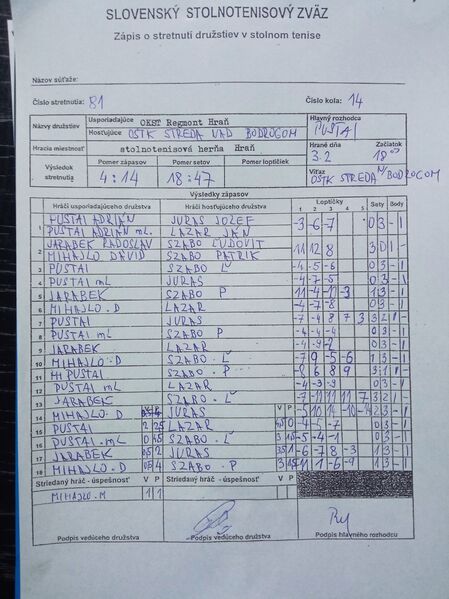 SLOVENSKÝ STOLNOTENISOVÝ ZVÄZ
Zápis o stretnutí družstiev v stolnom tenise
Názov súťaže:
Číslo stretnutia: 81 Číslo kola: 14
Názvy družstiev Usporiadajúce OKST Regmont Hraň Hlavný rozhodca
Hosťujúce OSTK STREDA NAD BODROGOM PUSTAI
Hracia miestnosť stolnotenisová herňa Hraň Hrané dňa Začiatok
3.2 18 00
Výsledok stretnutia Pomer zápasov Pomer setov Pomer loptičiek Víťaz
4:14 18:47 OSTK STREDA N/ BODROGOM
Výsledky zápasov
Hráči usporiadajúceho družstva Hráči hosťujúceho družstva Loptičky Sety Body
1 2 3 4 5
1 PUSTAI ADRIÁN JURAS JOZEF -3 -6 -7 0 3 - 1
PUSTAI ADRIÁN ml. LAZAR JÁN
2 JARABEK RADOSLAV SZABO ĽUDOVIT 11 12 8 3 0 1 -
MIHAJLO DÁVID SZABO PATRIK
3 PUSTAI SZABO Ľ -4 -5 -6 0 3 - 1
4 PUSTAI mL JURAS -4 -7 -5 0 3 - 1
5 JARABEK SZABO P 11 -4 -11 -3 1 3 - 1
6 MIHAJLO.D LAZAR -4 -7 -8 0 3 - 1
7 PUSTAI JURAS -7 -4 8 7 3 3 2 1 -
8 PUSTAI mL SZABO P -4 -4 -4 0 3 - 1
9 JARABEK LAZAR 0 3 - 1
10 MIHAJLO.D SZABO.Ľ -7 9 -5 -6 1 3 - 1
11 PUSTAI SZABO.P -8 6 8 9 3 1 1 -
12 PUSTAI mL LAZAR -4 -3 -9 0 3 - 1
13 JARABEK SZABO.Ľ
14 MIHAJLO.D JURAS -5 10 14 -10 -14 2 3 - 1
15 PUSTAI LAZAR -4 -5 -7 0 3 - 1
16 PUSTAI.mL SZABO.Ľ -5 -4 -1 0 3 - 1
17 JARABEK JURAS -6 -7 8 -3 1 3 - 1
18 MIHAJLO.D SZABO.P 11 1 -6 -9
Striedaný hráč - úspešnosť V P Striedaný hráč - úspešnosť V P
MIHAJLO.M 1 1
Podpis vedúceho družstva Podpis vedúceho družstva Podpis hlavného rozhodcu